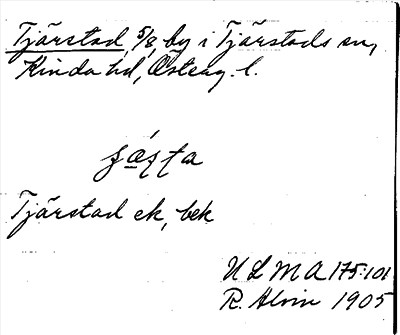 Tjärstad 5/8, by i Tjärstads sn,
Kinda hd, Österg. l.
Tjärstad ek, bek
ULMA 175:101
R. Alvin 1905